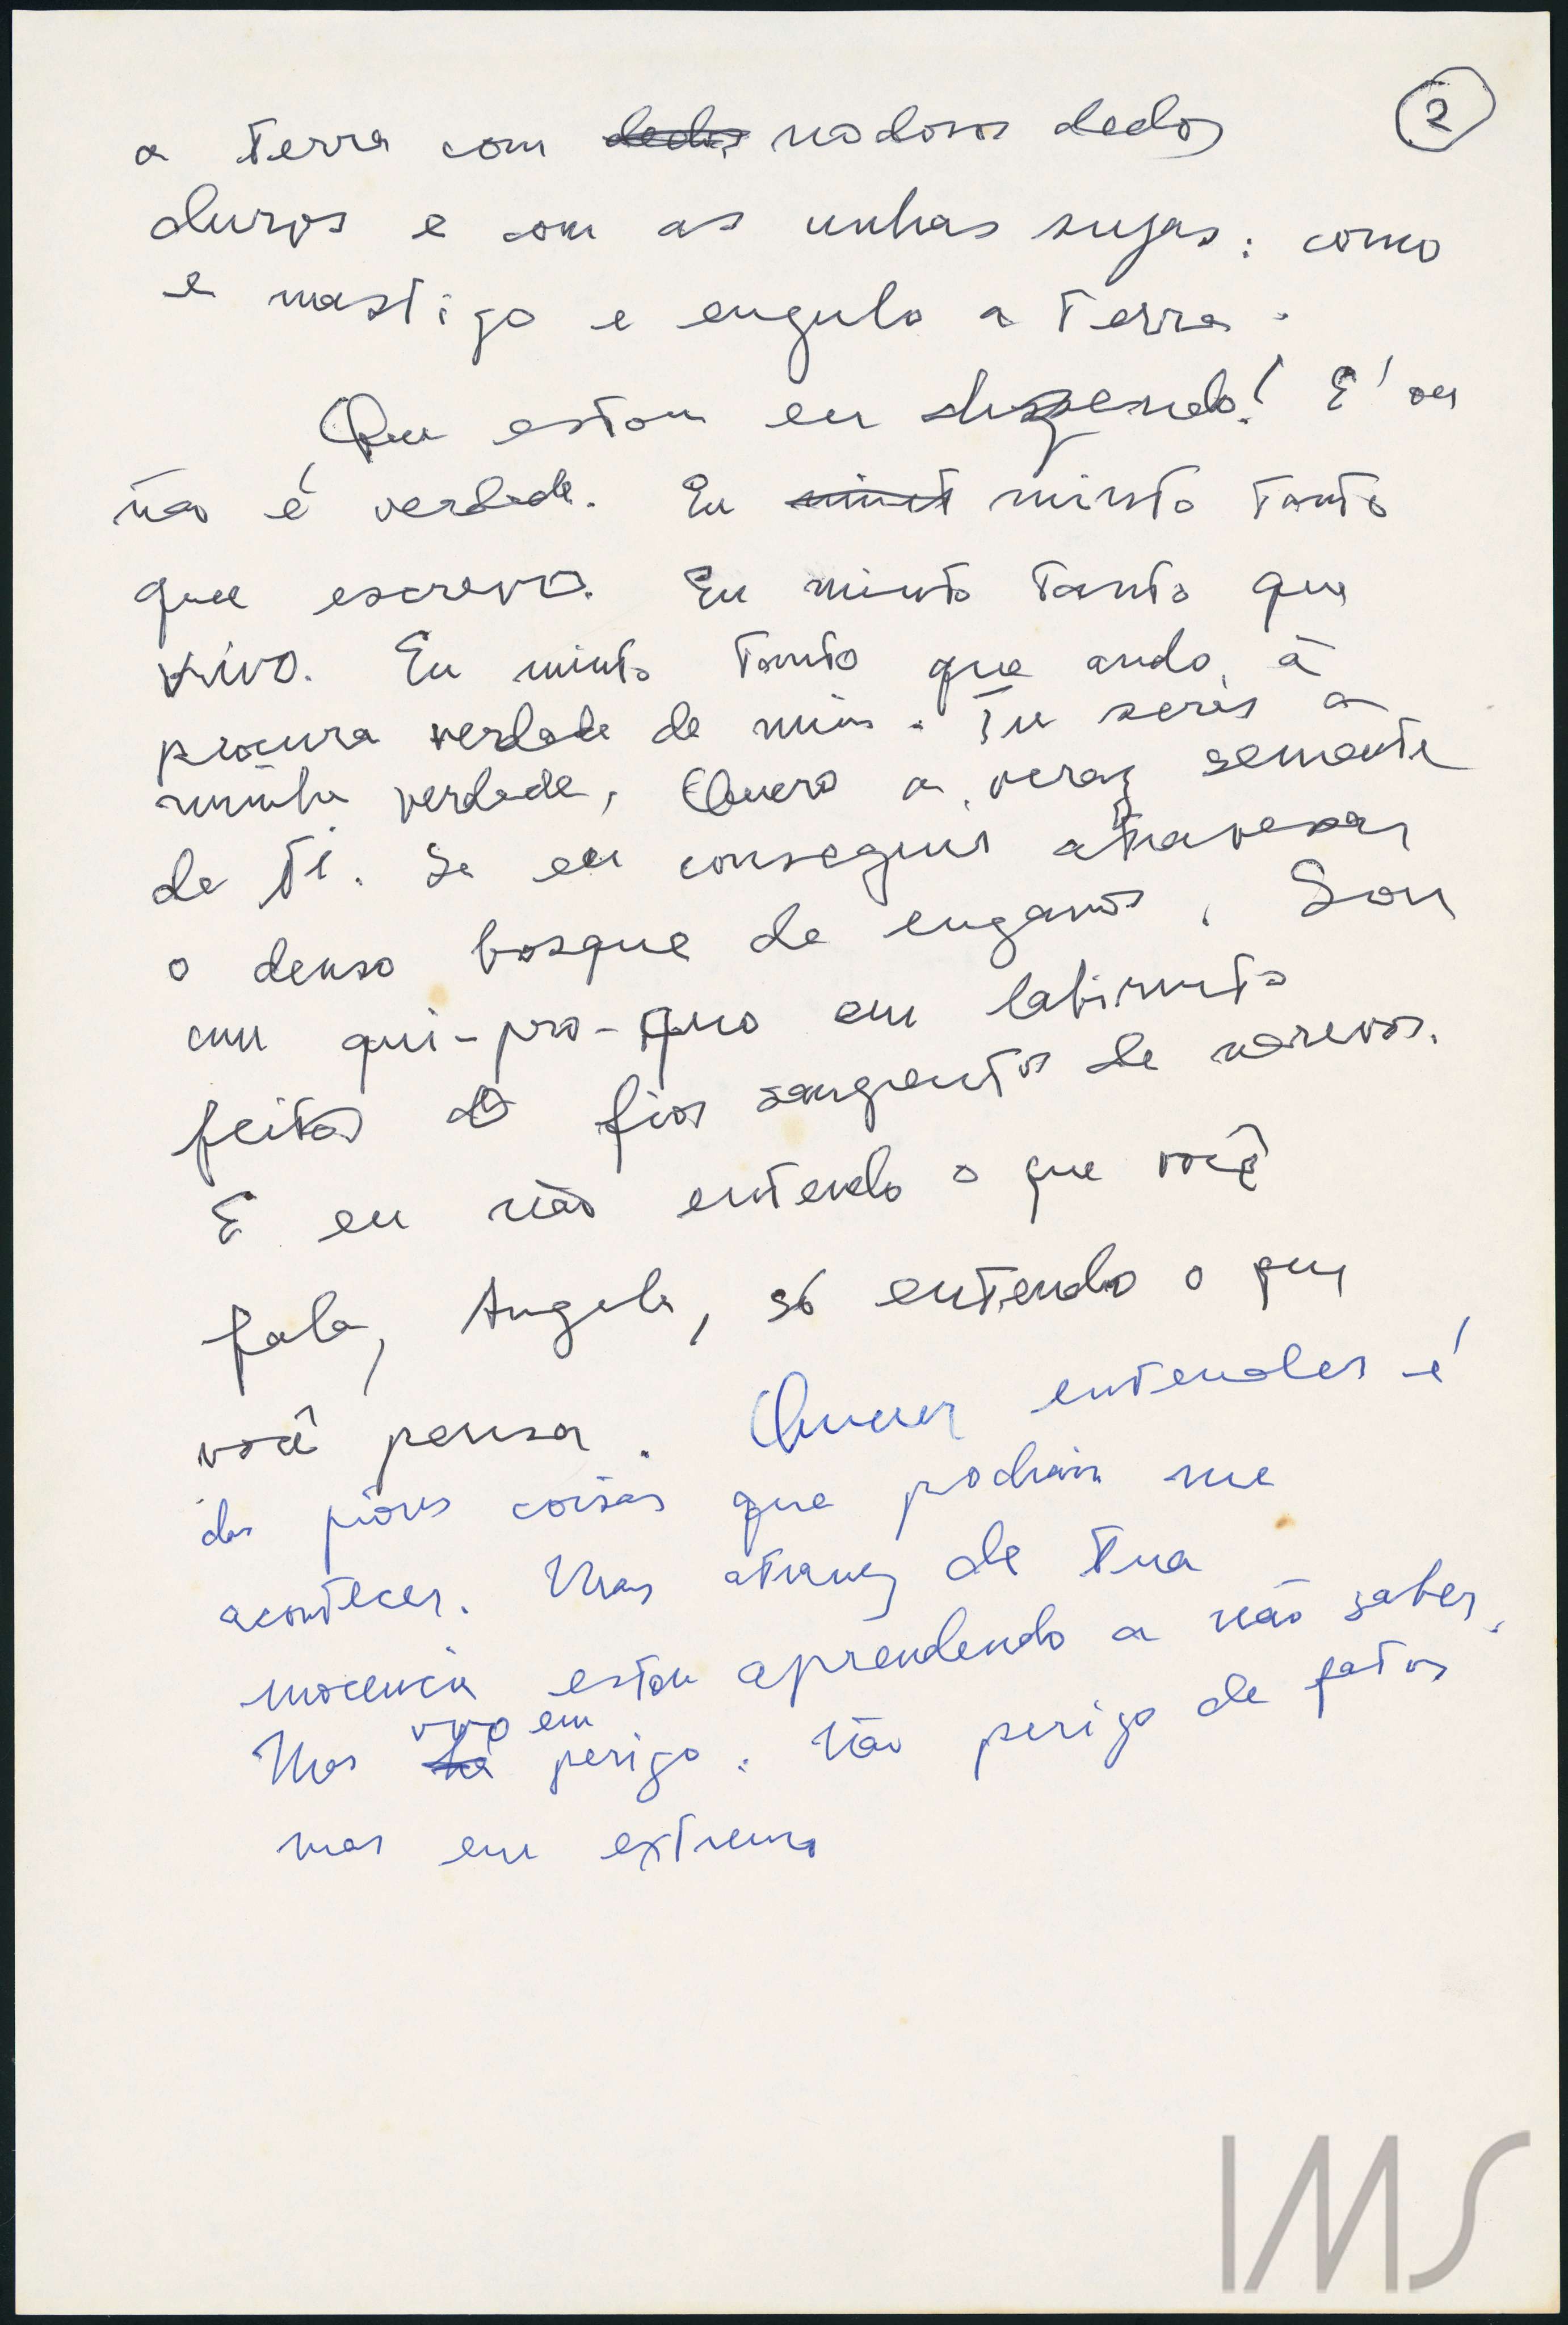 2
a terra com dedos nodosos dedos
duros e com as unhas sujas: como
e mastigo e engulo a terra.
Que estou eu dizendo! É ou
não é verdade. Eu mint minto tanto
que escrevo. Eu minto tanto que
vivo. Eu minto tanto que ando à
procura verdade de mim. Tu serás a
minha verdade. Quero a veraz semente
de ti. Se eu conseguir atravessar
o denso bosque de enganos. Sou
um qui-pro-quo em labirinto
feitos de fios sangrentos de nervos.
E eu não entendo o que você
fala, Angela, só entendo o que
você pensa. Querer entender é
das piores coisas que podiam me
acontecer. Mas atravez de tua
inocencia estou aprendendo a não saber.
vivo em
Mas há perigo. Não perigo de fatos
mas em extremo
IMS